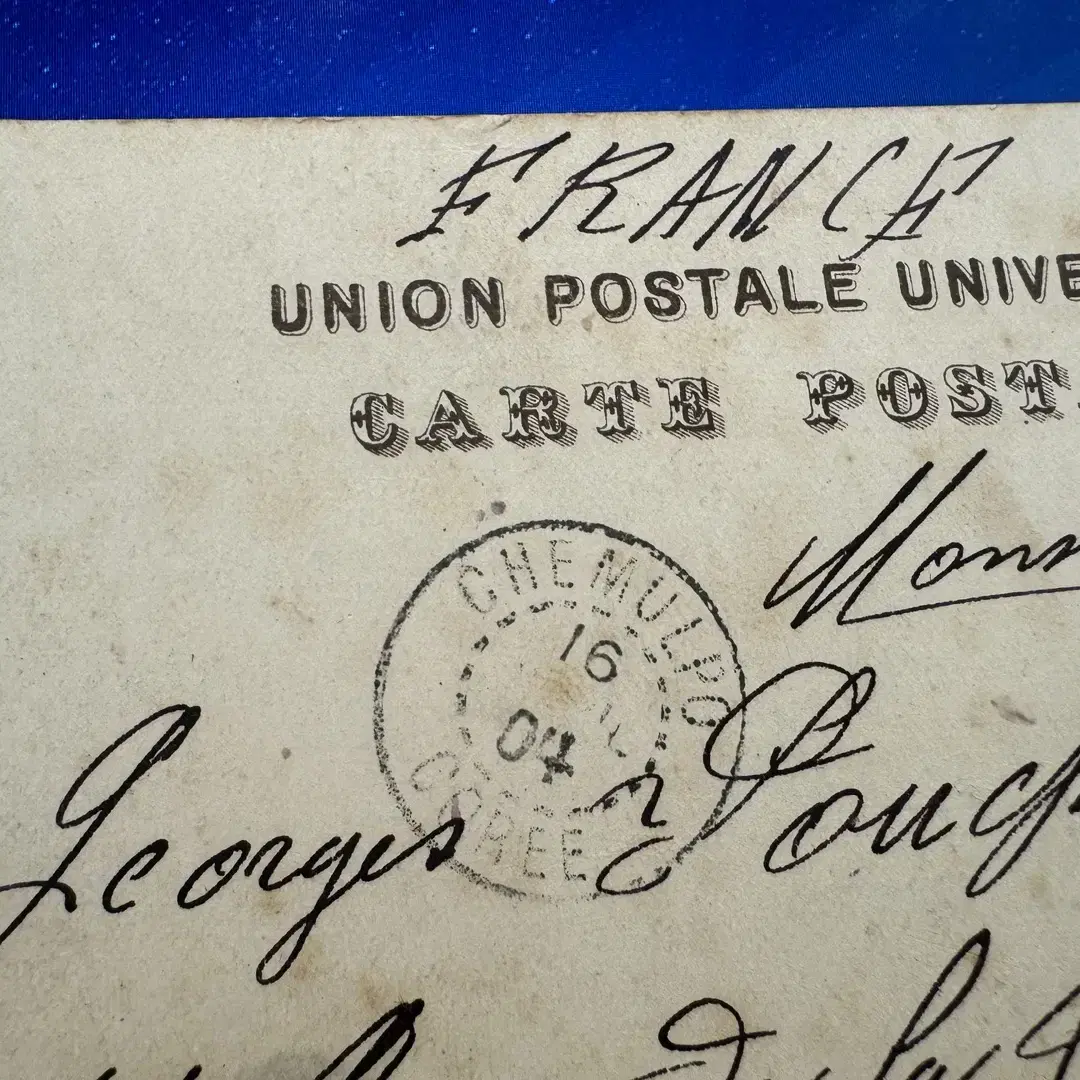 FRANCE
UNION POSTALE UNIVE
CARTE POST
Monn
CHEMULPO
16
04
COREE
Georges Pouc